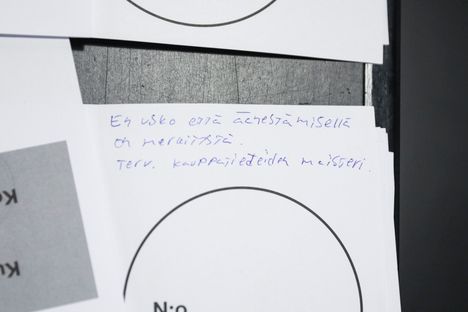 En usko että äänestämisellä
on merkitystä.
Terv. kauppatieteiden maisteri.
N:o